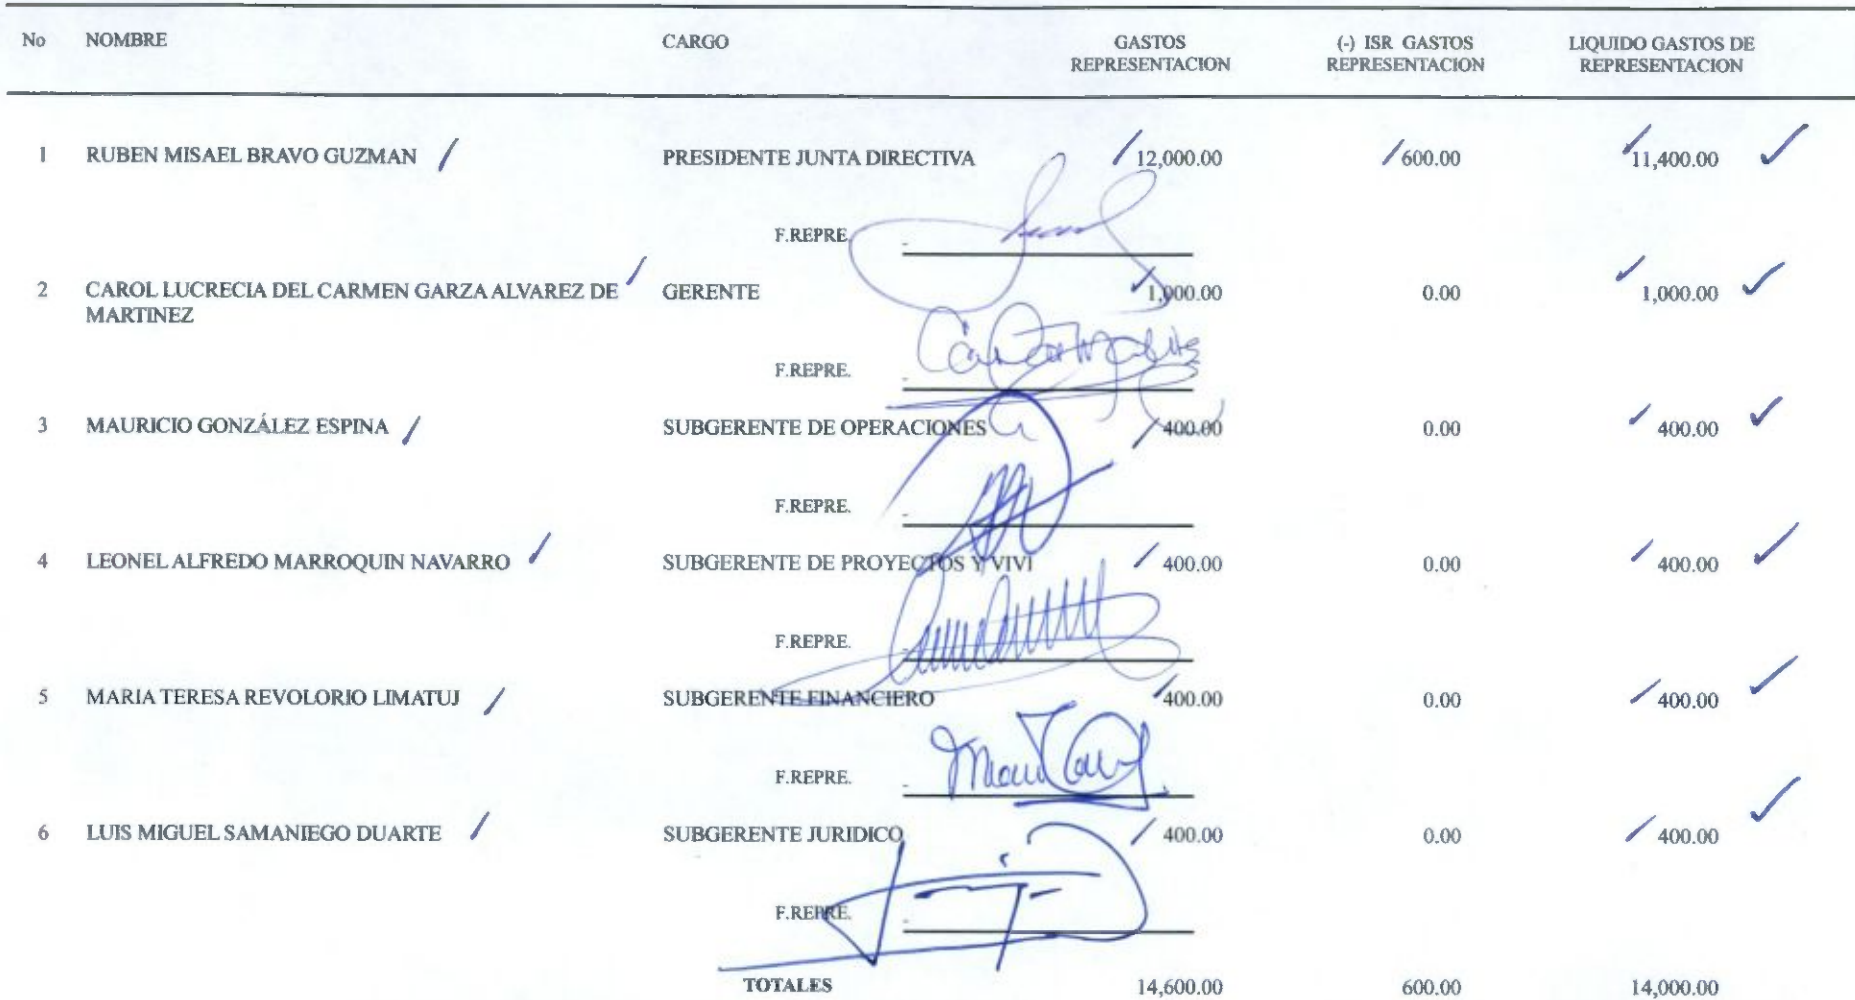 No NOMBRE CARGO GASTOS REPRESENTACION (-) ISR GASTOS REPRESENTACION LIQUIDO GASTOS DE REPRESENTACION
1 RUBEN MISAEL BRAVO GUZMAN PRESIDENTE JUNTA DIRECTIVA 12,000.00 600.00 11,400.00
F.REPRE.
2 CAROL LUCRECIA DEL CARMEN GARZA ALVAREZ DE GERENTE 1,000.00 0.00 1,000.00
MARTINEZ
F.REPRE.
3 MAURICIO GONZÁLEZ ESPINA SUBGERENTE DE OPERACIONES 400.00 0.00 400.00
F.REPRE.
4 LEONEL ALFREDO MARROQUIN NAVARRO SUBGERENTE DE PROYECTOS Y VIVI 400.00 0.00 400.00
F.REPRE.
5 MARIA TERESA REVOLORIO LIMATUJ SUBGERENTE FINANCIERO 400.00 0.00 400.00
F.REPRE.
6 LUIS MIGUEL SAMANIEGO DUARTE SUBGERENTE JURIDICO 400.00 0.00 400.00
F.REPRE.
TOTALES 14,600.00 600.00 14,000.00